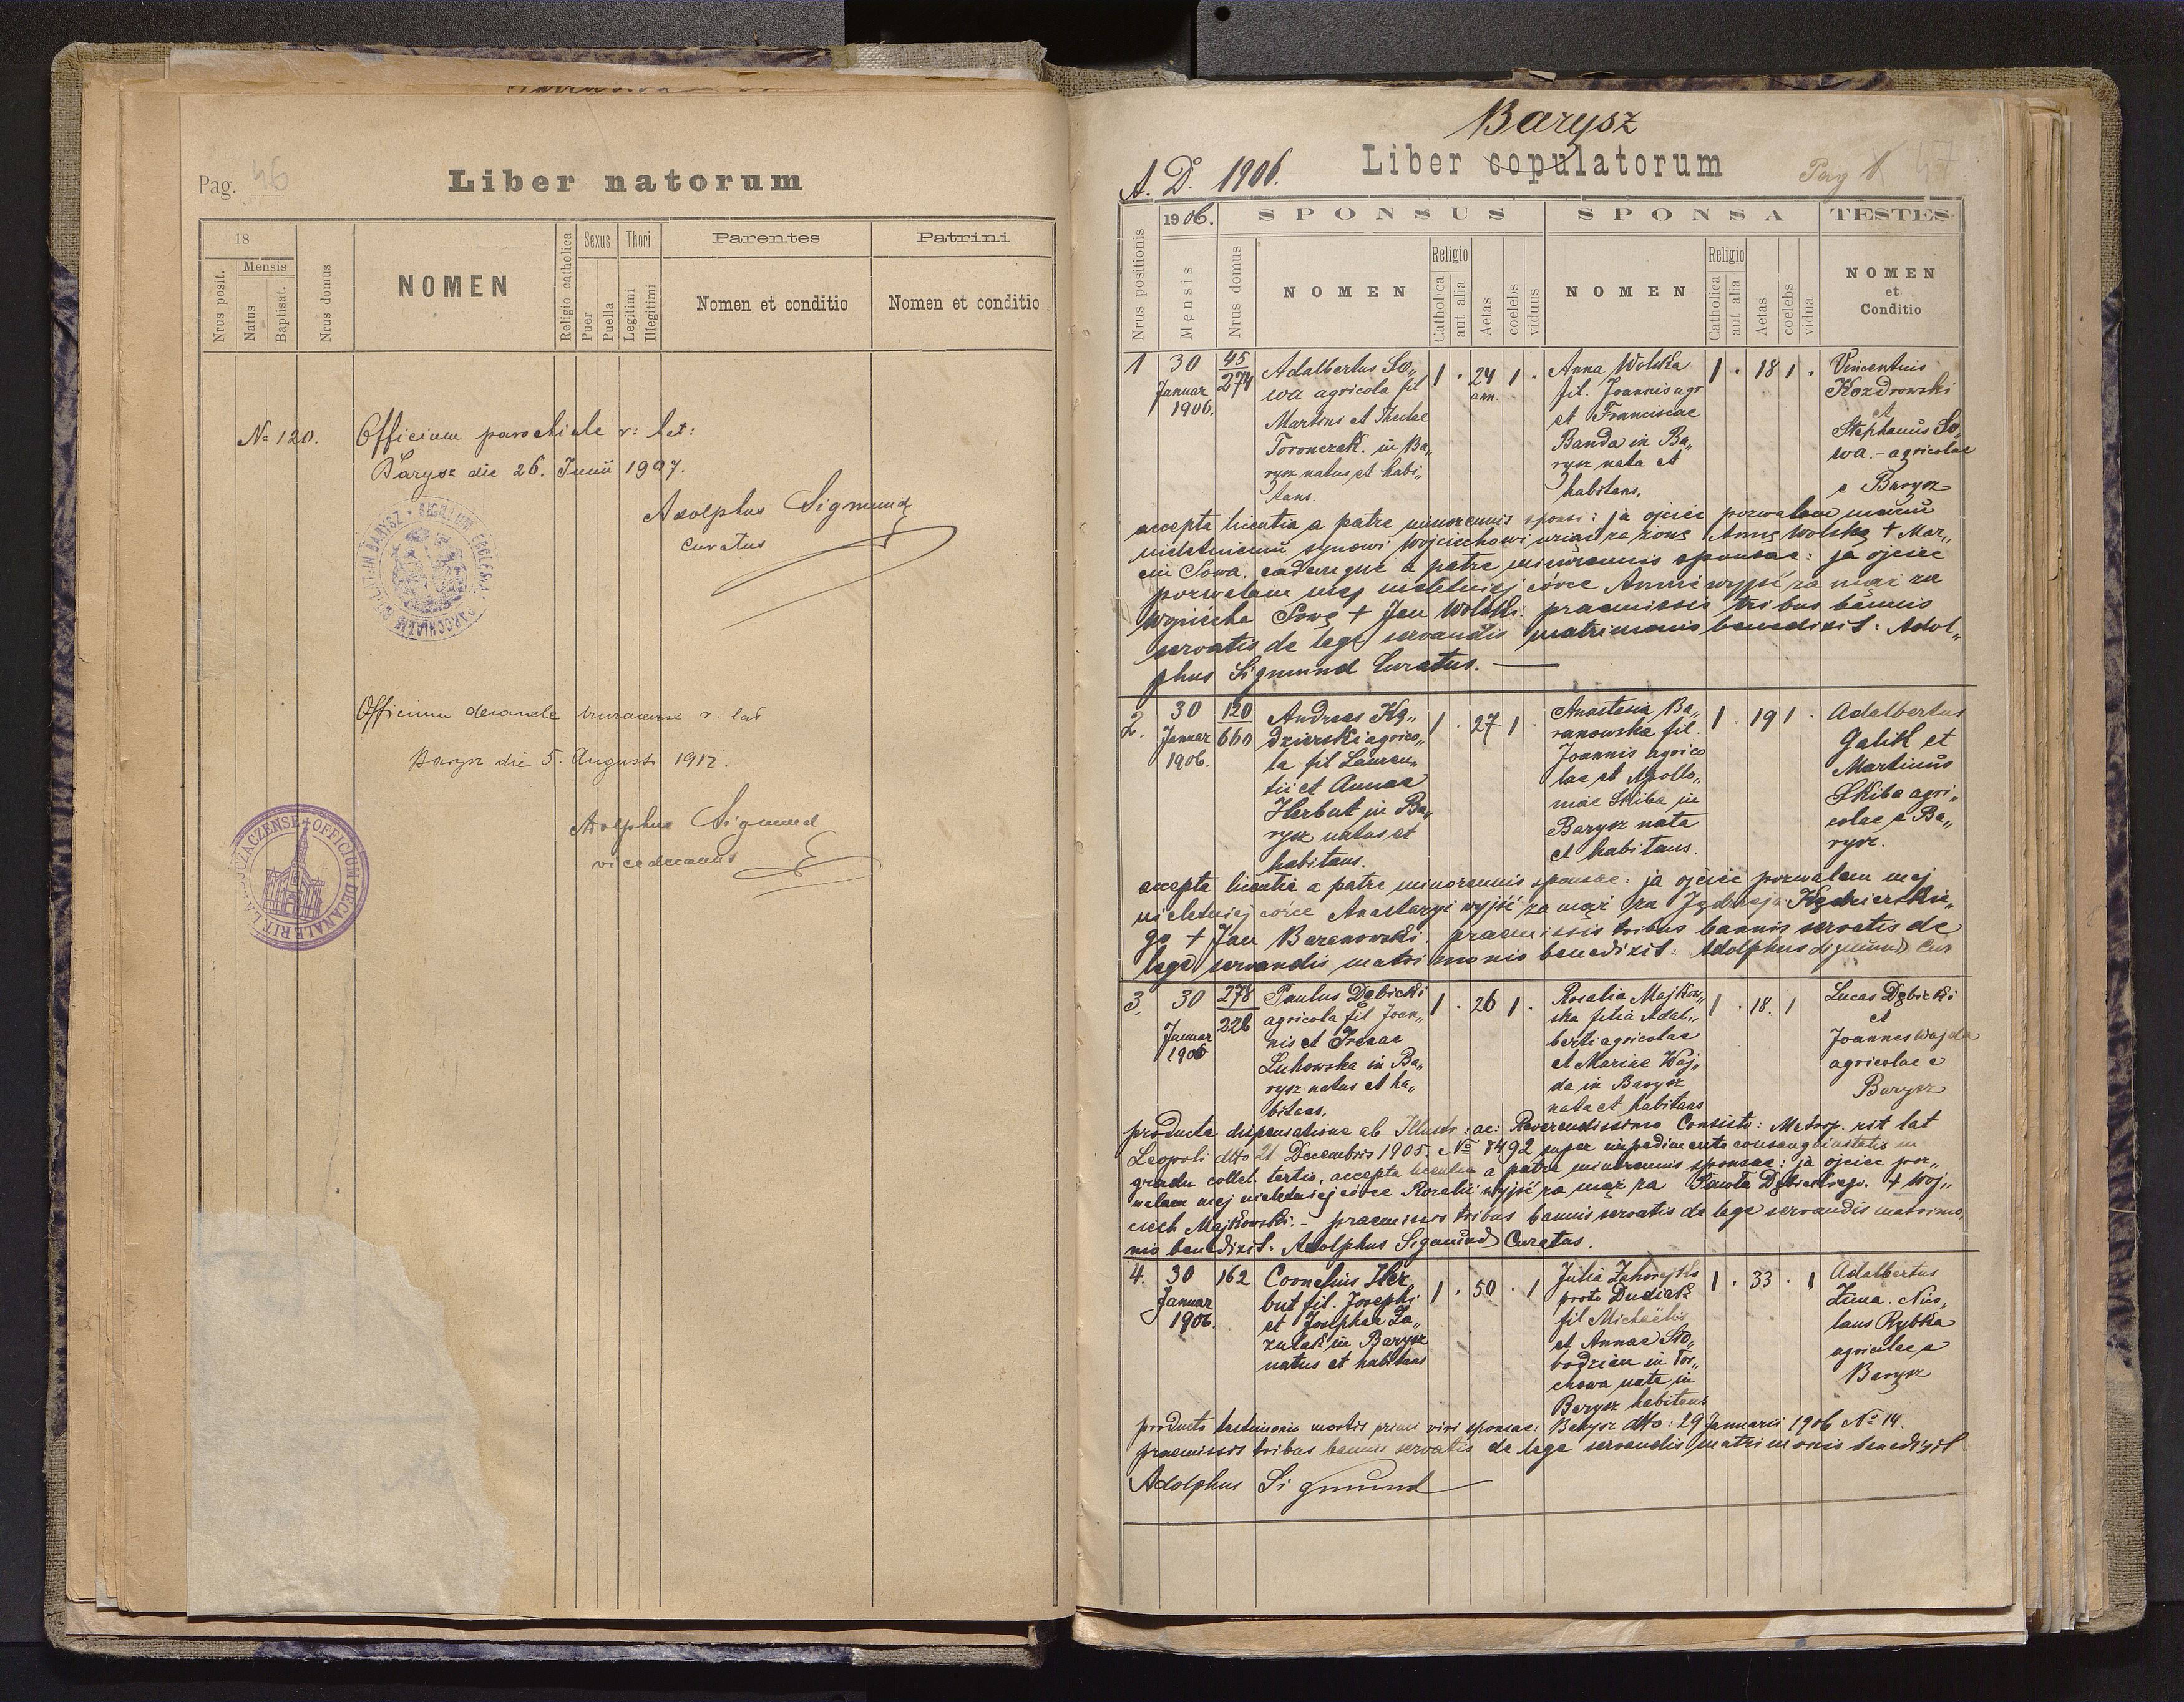 Pag. 46
Liber natorum
18
Mensis
Nrus posit.
Natus
Baptisat.
Nrus domus
NOMEN
Religio catholica
Sexus
Puer
Puella
Thori
Legitimi
Illegitimi
Parentes
Nomen et conditio
Patrini
Nomen et conditio
No 120. Officium parochiale r: lat:
Barysz die 26. Junii 1907.
Adolphus Sigmund
curatus
Officium decanale r. lat
Barysz die 5. Augusti 1912.
Adolphus Sigmund
vicedecanus
OFFICIUM DECANALE RIT. LAT. BUCZACZENSE
Barysz
A. D. 1906.
Liber copulatorum
Pag 1 47
Nrus positionis
1906.
Mensis
SPONSUS
Nrus domus
NOMEN
Religio
Catholica
aut alia
Aetas
coelebs
viduus
SPONSA
NOMEN
Religio
Catholica
aut alia
Aetas
coelebs
vidua
TESTES
NOMEN
et
Conditio
1
30
Januar
1906.
45
274
Adalbertus So„
wa agricola fil
Martini et Theclae
Toronczak. in Ba„
rysz natus et habi„
tans.
1 . 24 1 .
ann.
Anna Wolska
fil. Joannis agr
et Franciscae
Banda in Ba„
rysz nata et
habitans.
1 . 18 1 .
Vincentius
Kozdrowski
et
Stephanus So„
wa. - agricolae
e Barysz
accepta licentia a patre minorennis sponsi: ja ojciec pozwalam memu
nieletniemu synowi Wojciechowi wziąć za żonę Annę Wolską + Mar„
cin Sowa. eademque a patre minorennis sponsae: ja ojciec
pozwalam mej nieletniej córce Annie wyjść za mąż za
Wojciecha Sowę + Jan Wolski. praemissis tribus bannis
servatis de lege servandis matrimonio benedixit: Adol„
phus Sigmund Curatus.
2.
30
Januar
1906.
120
660
Andreas Kę„
dzierski agrico„
la fil Lauren„
tii et Annae
Herbut in Ba„
rysz natus et
habitans.
1 . 27 1 .
Anastasia Ba„
ranowska fil.
Joannis agrico
lae et Apollo„
niae Skiba in
Barysz nata
et habitans.
1 . 19 1 .
Adalbertus
Galik et
Martinus
Skiba agri„
colae e Ba„
rysz.
accepta licentia a patre minorennis sponsae: ja ojciec pozwalam mej
nieletniej córce Anastazyi wyjść za mąż za Jędrzeja Kędzierskie„
go + Jan Baranowski. praemissis tribus bannis servatis de
lege servandis matrimonio benedixit: Adolphus Sigmund Cur
3.
30
Januar
1906
278
226
Paulus Dębicki
agricola fil Joan„
nis et Irenae
Luhowska in Ba„
rysz natus et ha„
bitans.
1 . 26 1 .
Rosalia Majkow„
ska filia Adal„
berti agricolae
et Mariae Waj„
da in Barysz
nata et habitans
1 . 18. 1
Lucas Dębicki
et
Joannes Wajda
agricolae e
Barysz
producta dispensatione ab Illustr: ac: Reverendissimo Consisto: Metrop. rit lat
Leopoli dtto 21 Decembris 1905. No 8492 super impedimento consanguinitatis in
gradu collat. tertio, accepta licentia a patre minorennis sponsae: ja ojciec poz„
walam mej nieletniej córce Rozalii wyjść za mąż za Pawła Dębickiego. + Woj„
ciech Majkowski. - praemissis tribus bannis servatis de lege servandis matrimo„
nio benedixit: Adolphus Sigmund Curatus.
4.
30
Januar
1906.
162
Cornelius Her
but fil. Josephi
et Josephae Za„
zulak in Barysz
natus et habitans
1 . 50 . 1
Julia
proto Dudiak
fil Michaëlis
et Annae Sło„
bodzian in
chowa nata in
Barysz habitans
1 . 33 . 1
Adalbertus
Zima. Nico„
laus Rybka
agricolae e
Barysz
producto testimonio mortis primi viri sponsae: Barysz dtto: 29 Januarii 1906 No 14.
praemissis tribus bannis servatis de lege servandis matrimonio benedixit
Adolphus Sigmund